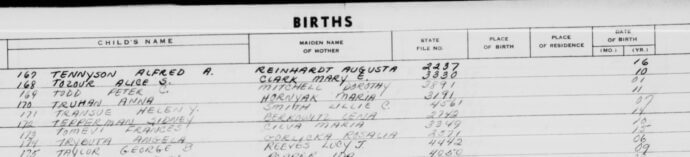 BIRTHS
CHILD'S NAME MAIDEN NAME OF MOTHER STATE FILE NO. PLACE OF BIRTH PLACE OF RESIDENCE DATE OF BIRTH (MO.) (YR.)
167 TENNYSON ALFRED A. REINHARDT AUGUSTA 2237 16
168 TOZOUR ALICE S. CLARK MARY E. 3330 10
169 TODD PETER C. MITCHELL DOROTHY 3891 01
170 TRUHAN ANNA HORNYAK MARIA 3191 11
171 TRANSUE HELEN Y. SMITH LILLIE C. 4561 07
172 TEPPERMAN SIDNEY BERKOWITZ LENA 2742 14
173 TOMEVI FRANCES CILVA MARIA 3349 10
174 TRYBUTA ANGELA GORLICKA ROSALIA 12
175 TAYLOR GEORGE B REEVES LUCY J 4442 06
4050 09